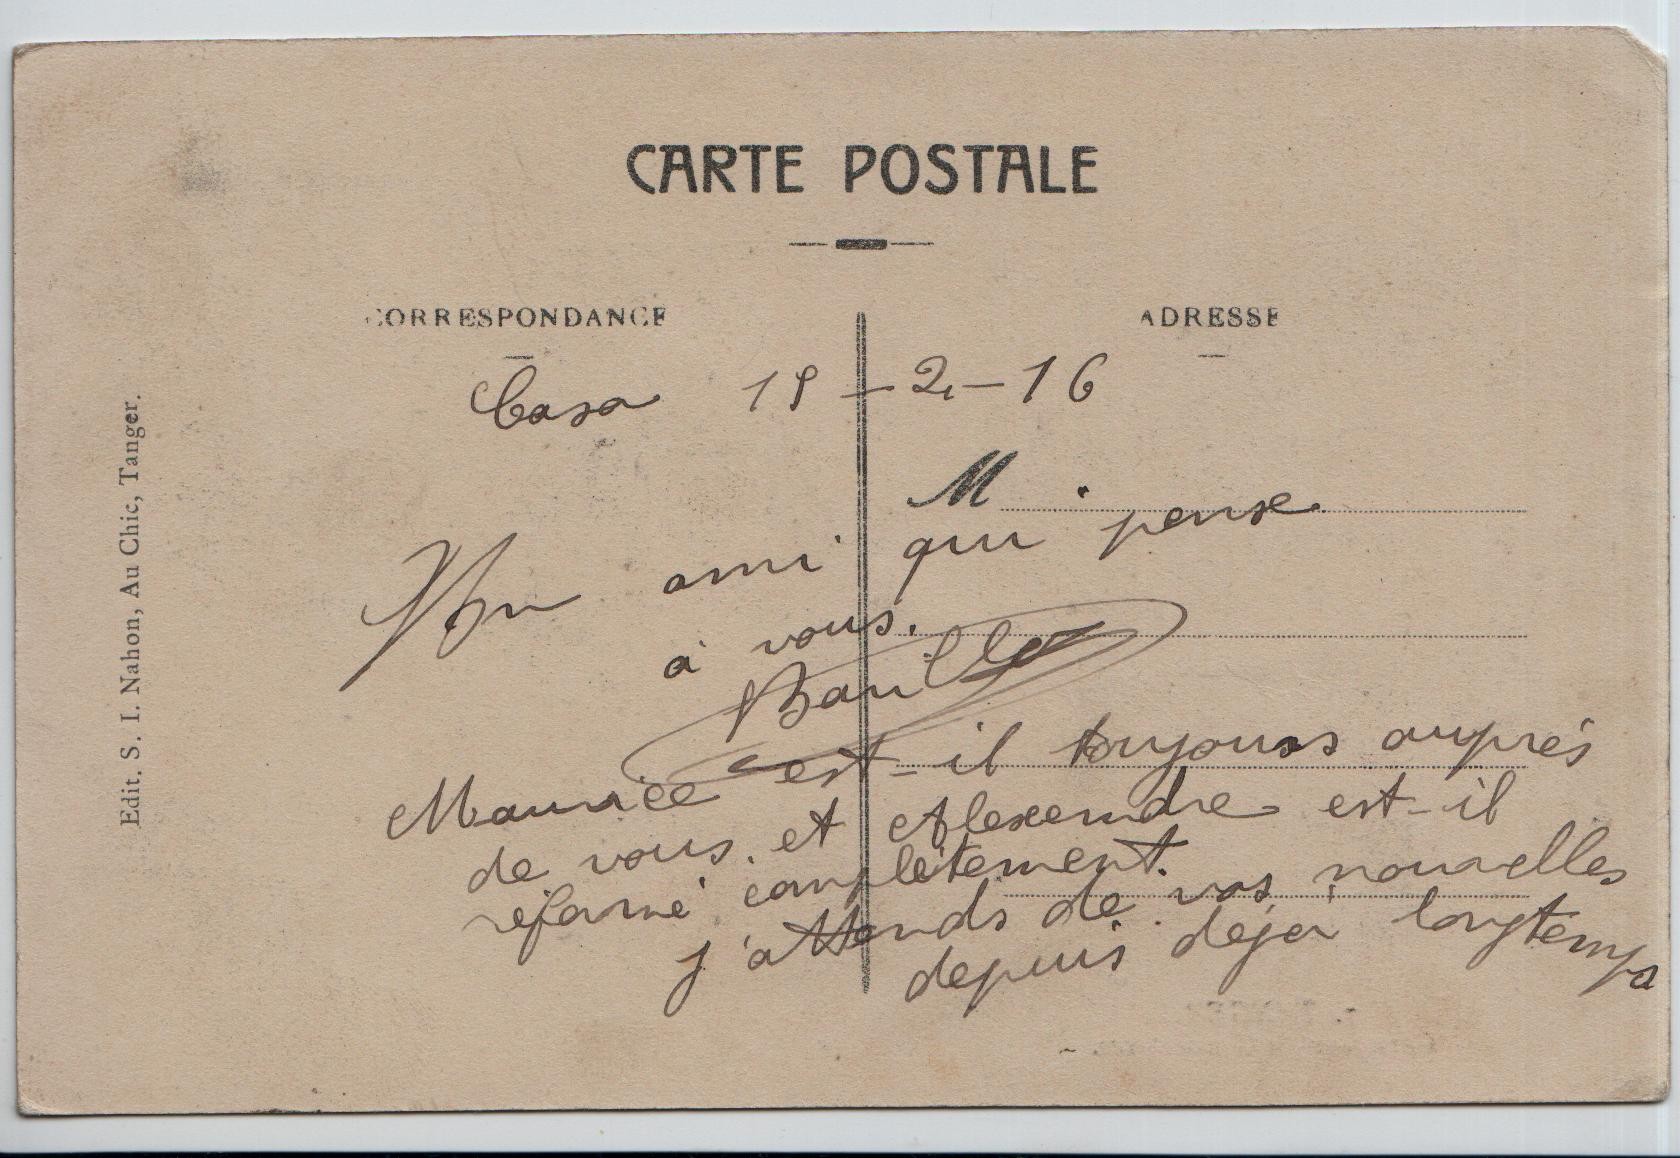 CARTE POSTALE
CORRESPONDANCE
ADRESSE
Casa 19-2-16
M
Un ami qui pense
à vous.
Maurice est-il toujours auprés
de vous. et Alexendre est-il
réformé complètement.
j'attends de vos nouvelles
depuis déjà longtemps
Edit. S. I. Nahon, Au Chic, Tanger.